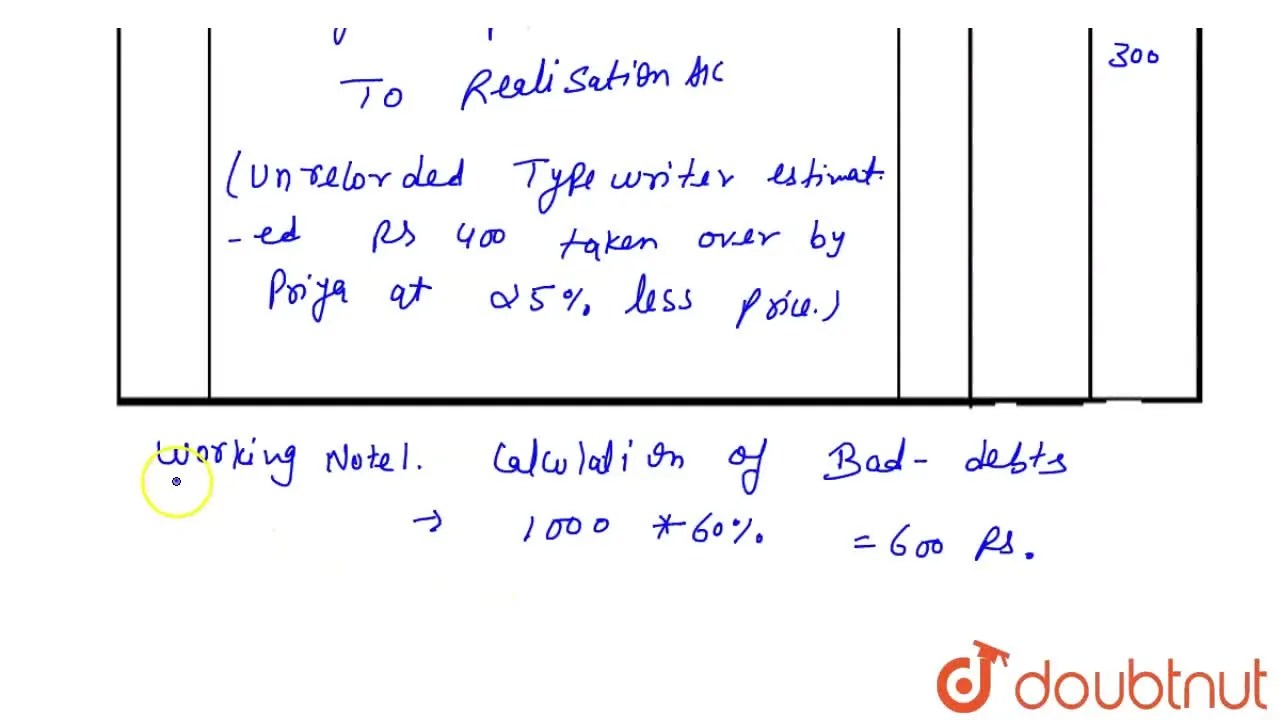 300
To Realisation A/C
(Unrecorded Typewriter estimat-
-ed Rs 400 taken over by
Priya at 25% less price.)
Working Note 1. Calculation of Bad-debts
→ 1000 * 60% = 600 Rs.
doubtnut